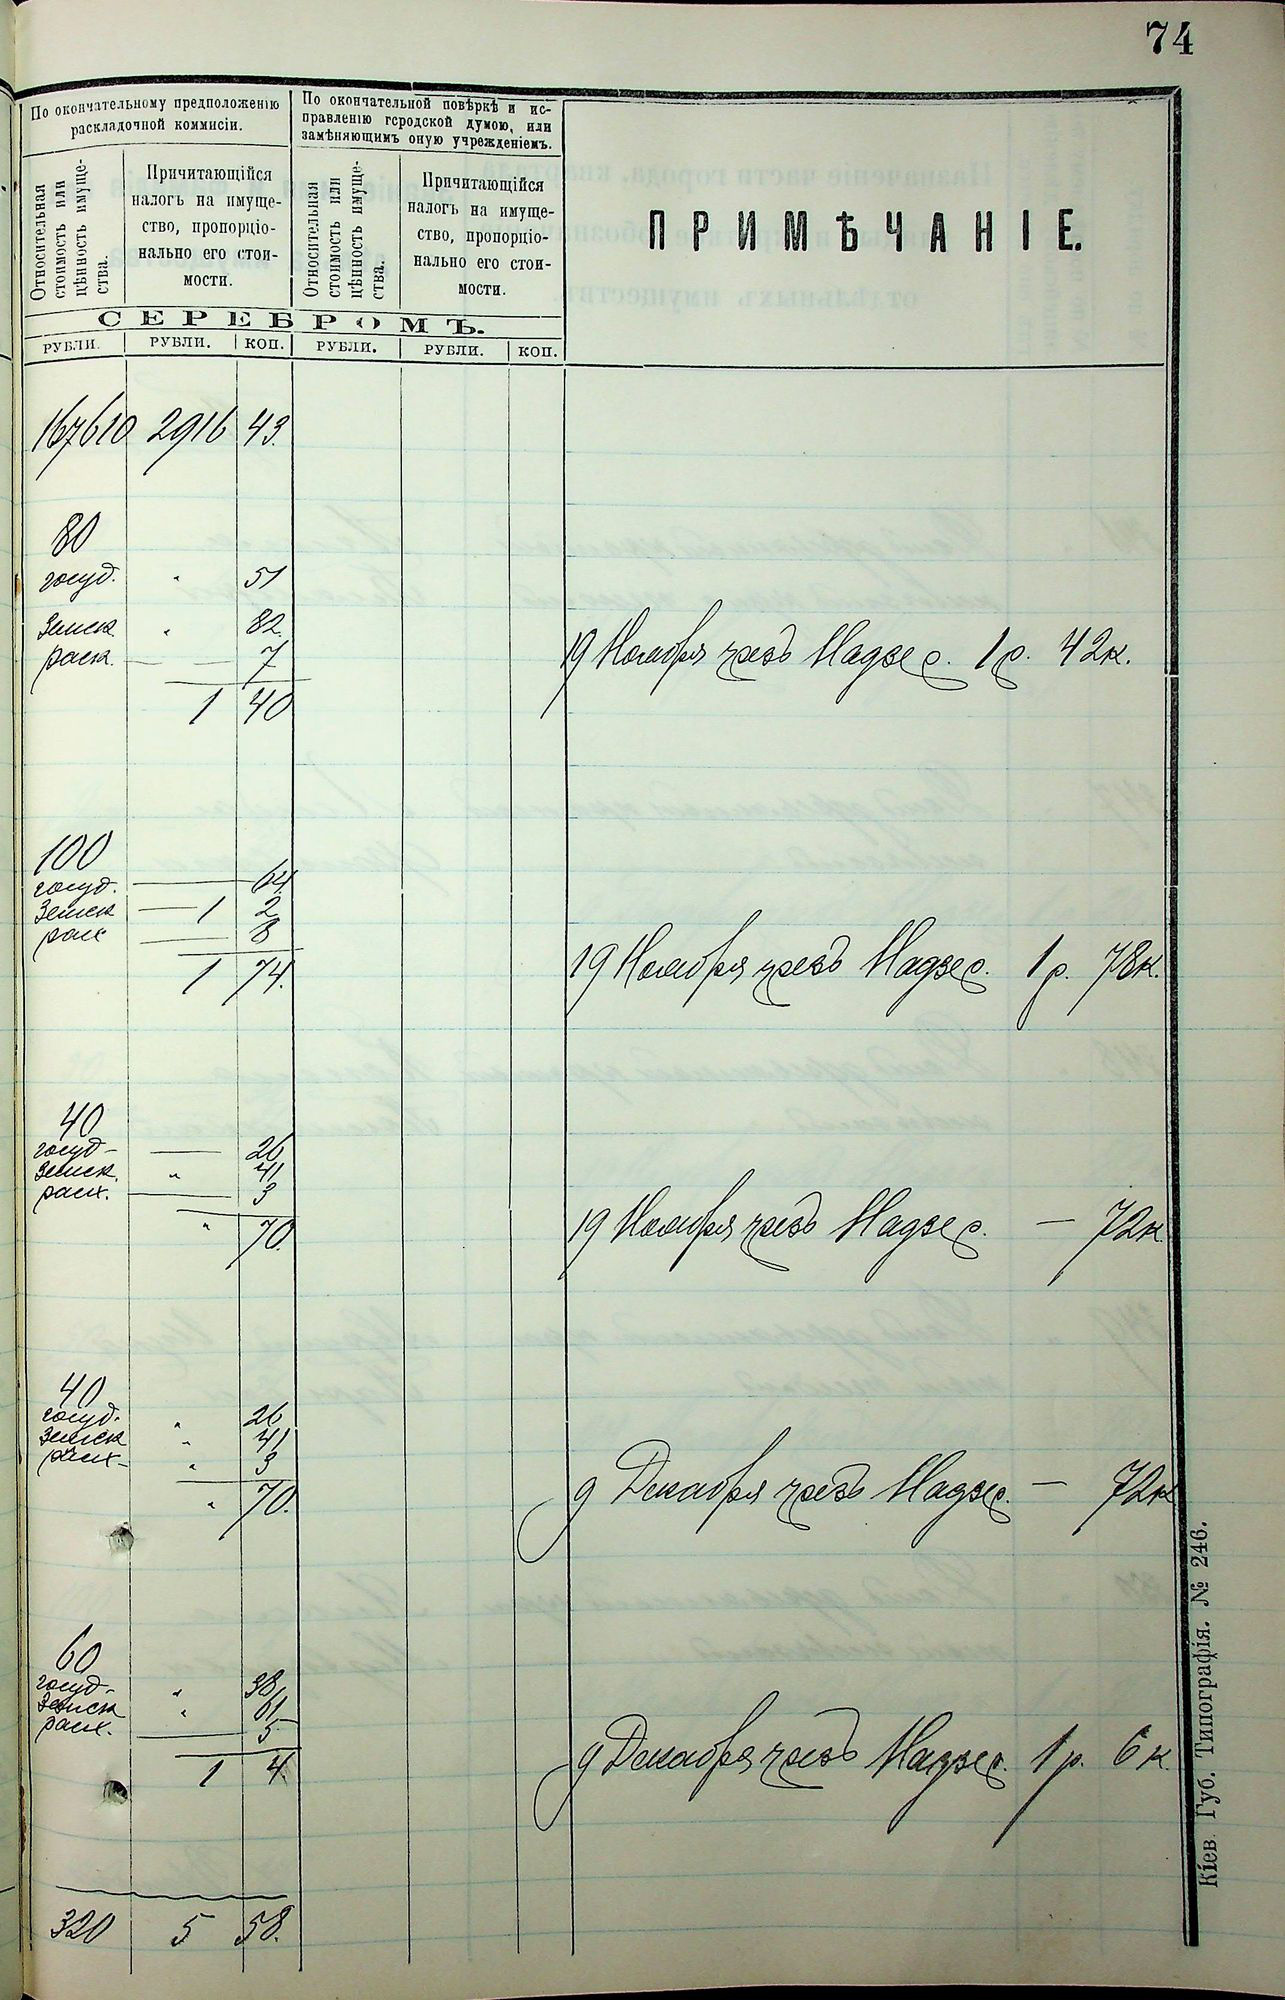 74
По окончательному предположенію
раскладочной коммисіи.
По окончательной повѣркѣ и ис-
правленію городской думою, или
замѣняющимъ оную учрежденіемъ.
Относительная
стоимость или
цѣнность имуще-
ства.
Причитающійся
налогъ на имуще-
ство, пропорціо-
нально его стои-
мости.
Относительная
стоимость или
цѣнность имуще-
ства.
Причитающійся
налогъ на имуще-
ство, пропорціо-
нально его стои-
мости.
ПРИМѢЧАНІЕ.
СЕРЕБРОМЪ.
РУБЛИ. РУБЛИ. КОП. РУБЛИ. РУБЛИ. КОП.
167610 2916 43.
80
госуд. " 51
Земск " 82
раск. — 7
19 Ноября чрезъ Надзер. 1 р. 42 к.
1 40
100
госуд. — 64
Земск — 1 2
расх — 8
1 74.
19 Ноября чрезъ Надзер. 1 р. 78 к.
40
госуд — 26
Земск. " 41
расх. — 3
" 70.
19 Ноября чрезъ Надзер. — 72 к
40
госуд. " 26
Земск " 41
расх " 3
" 70.
9 Декабря чрезъ Надзер. — 72 к
60
госуд " 38
Земск " 61
расх. — 5
1 4.
9 Декабря чрезъ Надзер. 1 р. 6 к.
320 5 58.
Кіев. Губ. Типографія. № 246.